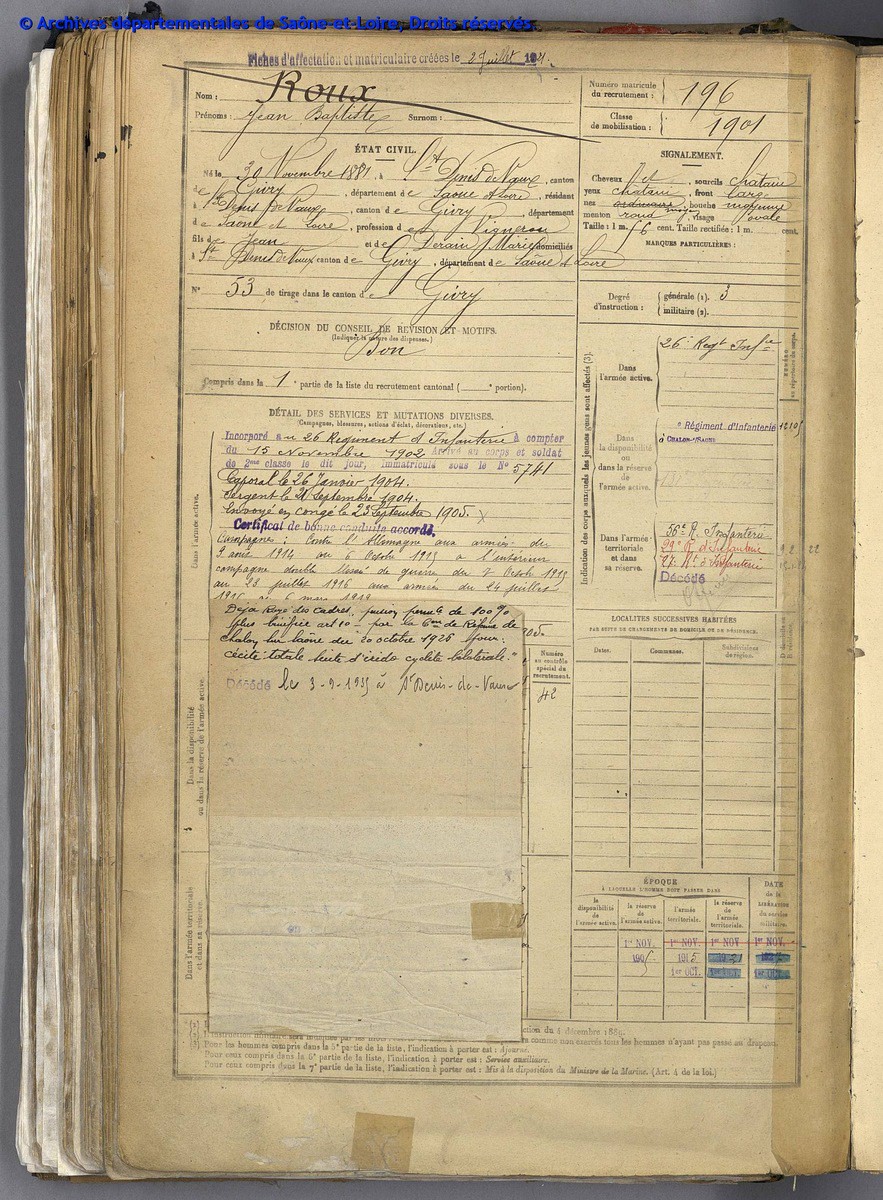 © Archives départementales de Saône-et-Loire, Droits réservés
Fiches d'affectation et matriculaire créées le 2 Juillet 1921.
Nom : Roux
Prénoms : Jean Baptiste Surnom :
Numéro matricule du recrutement : 196
Classe de mobilisation : 1901
ÉTAT CIVIL.
Né le 30 Novembre 1881, à St Denis de Vaux, canton
de Givry, département de Saône et Loire, résidant
à St Denis de Vaux, canton de Givry, département
de Saône et Loire, profession de Vigneron
fils de Jean et de Derain Marie domiciliés
à St Denis de Vaux canton de Givry, département de Saône et Loire
N° 53 de tirage dans le canton de Givry
SIGNALEMENT.
Cheveux sourcils chatain
yeux chatain, front large
nez ordinaire, bouche moyenne
menton rond, visage ovale
Taille : 1 m. cent. Taille rectifiée : 1 m. cent.
MARQUES PARTICULIÈRES :
Degré d'instruction : générale (1). 3
militaire (2).
DÉCISION DU CONSEIL DE RÉVISION ET MOTIFS.
(Indiquer la nature des dispenses.)
Bon
Compris dans la 1e partie de la liste du recrutement cantonal ( e portion).
DÉTAIL DES SERVICES ET MUTATIONS DIVERSES.
(Campagnes, blessures, actions d'éclat, décorations, etc.)
Dans l'armée active.
Incorporé au 26 Régiment d'Infanterie à compter
du 15 Novembre 1902 Arrivé au corps et soldat
de 2me classe le dit jour, immatriculé sous le N° 5741
Caporal le 26 Janvier 1904.
Sergent le 21 Septembre 1904.
Envoyé en congé le 23 Septembre 1905.
Certificat de bonne conduite accordé.
Campagnes : Contre l'Allemagne aux armées du
2 août 1914 au 6 Octobre 1915 à l'intérieur
campagne double blessé de guerre du 7 Octobre 1915
au 23 juillet 1916 aux armées du 24 juillet
1916 au 6 mars 1919
Déjà Rayé des cadres, pension permte de 100%
plus bénéfice art 10 par la Con de Réforme de
Chalon sur Saône du 20 octobre 1926 pour :
cécité totale suite d'irido cyclite bilatérale."
Décédé le 3-9-1935 à St Denis-de-Vaux
Dans la disponibilité
ou dans la réserve de l'armée active.
Dans l'armée territoriale
et dans sa réserve.
Numéro
au contrôle
spécial du
recrutement.
42
Indication des corps auxquels les jeunes gens sont affectés (3).
Dans l'armée active.
26e Regt Infie
Dans la disponibilité ou dans la réserve de l'armée active.
e Régiment d'Infanterie
à CHALON-S/SAONE
Dans l'armée territoriale et dans sa réserve.
56e R. Infanterie
Décédé
LOCALITÉS SUCCESSIVES HABITÉES
PAR SUITE DE CHANGEMENTS DE DOMICILE OU DE RÉSIDENCE.
Dates. Communes. Subdivisions de région.
ÉPOQUE
À LAQUELLE L'HOMME DOIT PASSER DANS
DATE de la LIBÉRATION du service militaire.
la disponibilité de l'armée active. la réserve de l'armée active. l'armée territoriale. la réserve de l'armée territoriale.
1er NOV. 1er NOV. 1er NOV 1er NOV.
1905 1915
1er OCT.
ction du 4 décembre 1889.
Pour les hommes compris dans la 5e partie de la liste, l'indication à porter est : Ajourné.
Pour ceux compris dans la 6e partie de la liste, l'indication à porter est : Service auxiliaire.
Pour ceux compris dans la 7e partie de la liste, l'indication à porter est : Mis à la disposition du Ministre de la Marine. (Art. 4 de la loi.)